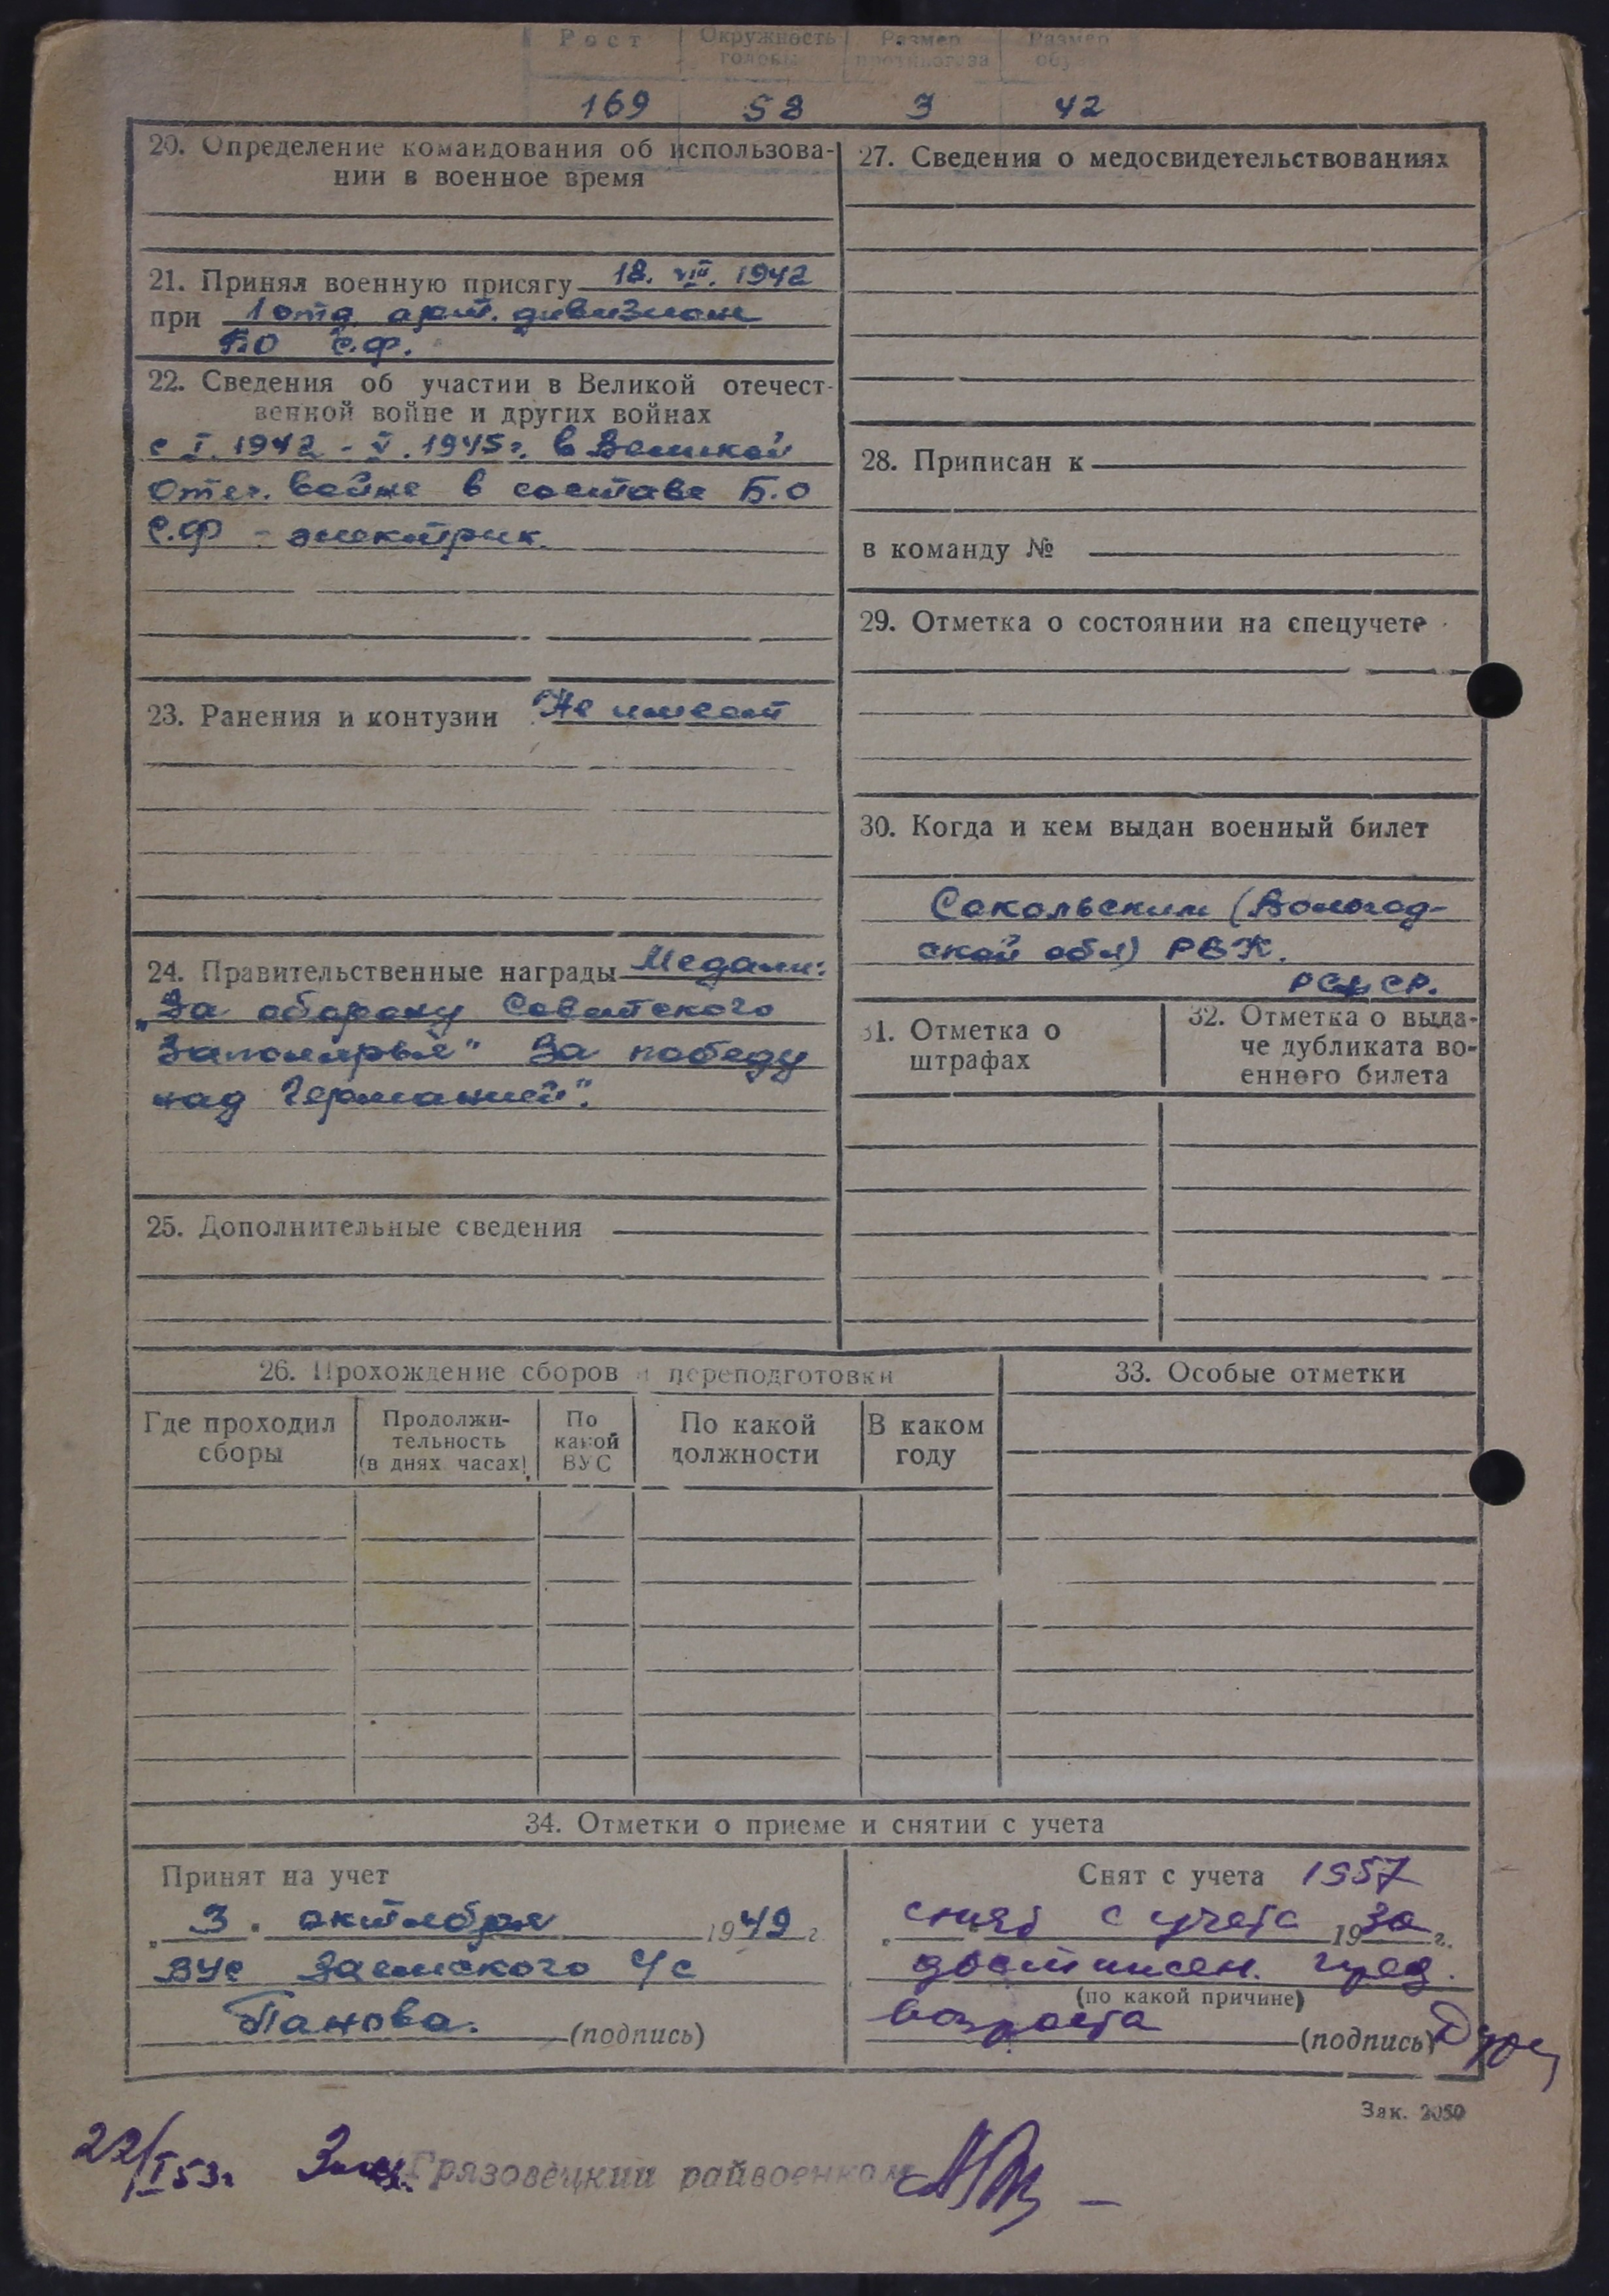 Рост Окружность головы Размер противогаза Размер обу
169 58 3 42
20. Определение командования об использова-
нии в военное время
21. Принял военную присягу 18. VIII. 1942
при 1 отд. арт. дивизион
БО С.Ф.
22. Сведения об участии в Великой отечест-
венной войне и других войнах
с I. 1942 - V. 1945 г. в Великой
Отеч. войне в составе Б.О
С.Ф - электрик.
23. Ранения и контузии Не имеет
24. Правительственные награды Медали:
„За оборону Советского
Заполярья" За победу
над Германией".
25. Дополнительные сведения
27. Сведения о медосвидетельствованиях
28. Приписан к
в команду №
29. Отметка о состоянии на спецучете
30. Когда и кем выдан военный билет
Сокольским (Вологод-
ской обл) РВК.
РСФСР.
31. Отметка о
штрафах
32. Отметка о выда-
че дубликата во-
енного билета
26. Прохождение сборов и переподготовки
Где проходил
сборы
Продолжи-
тельность
(в днях часах)
По
какой
ВУС
По какой
должности
В каком
году
33. Особые отметки
34. Отметки о приеме и снятии с учета
Принят на учет
„ 3 . октября 1949 г.
ВУС Заемского с/с
Панова. (подпись)
Снят с учета 1957
снят с учета 19 за г.
достижен. пред.
(по какой причине)
возраста (подпись)
Зак. 2050
22/I 53 г Грязовецкий райвоенком